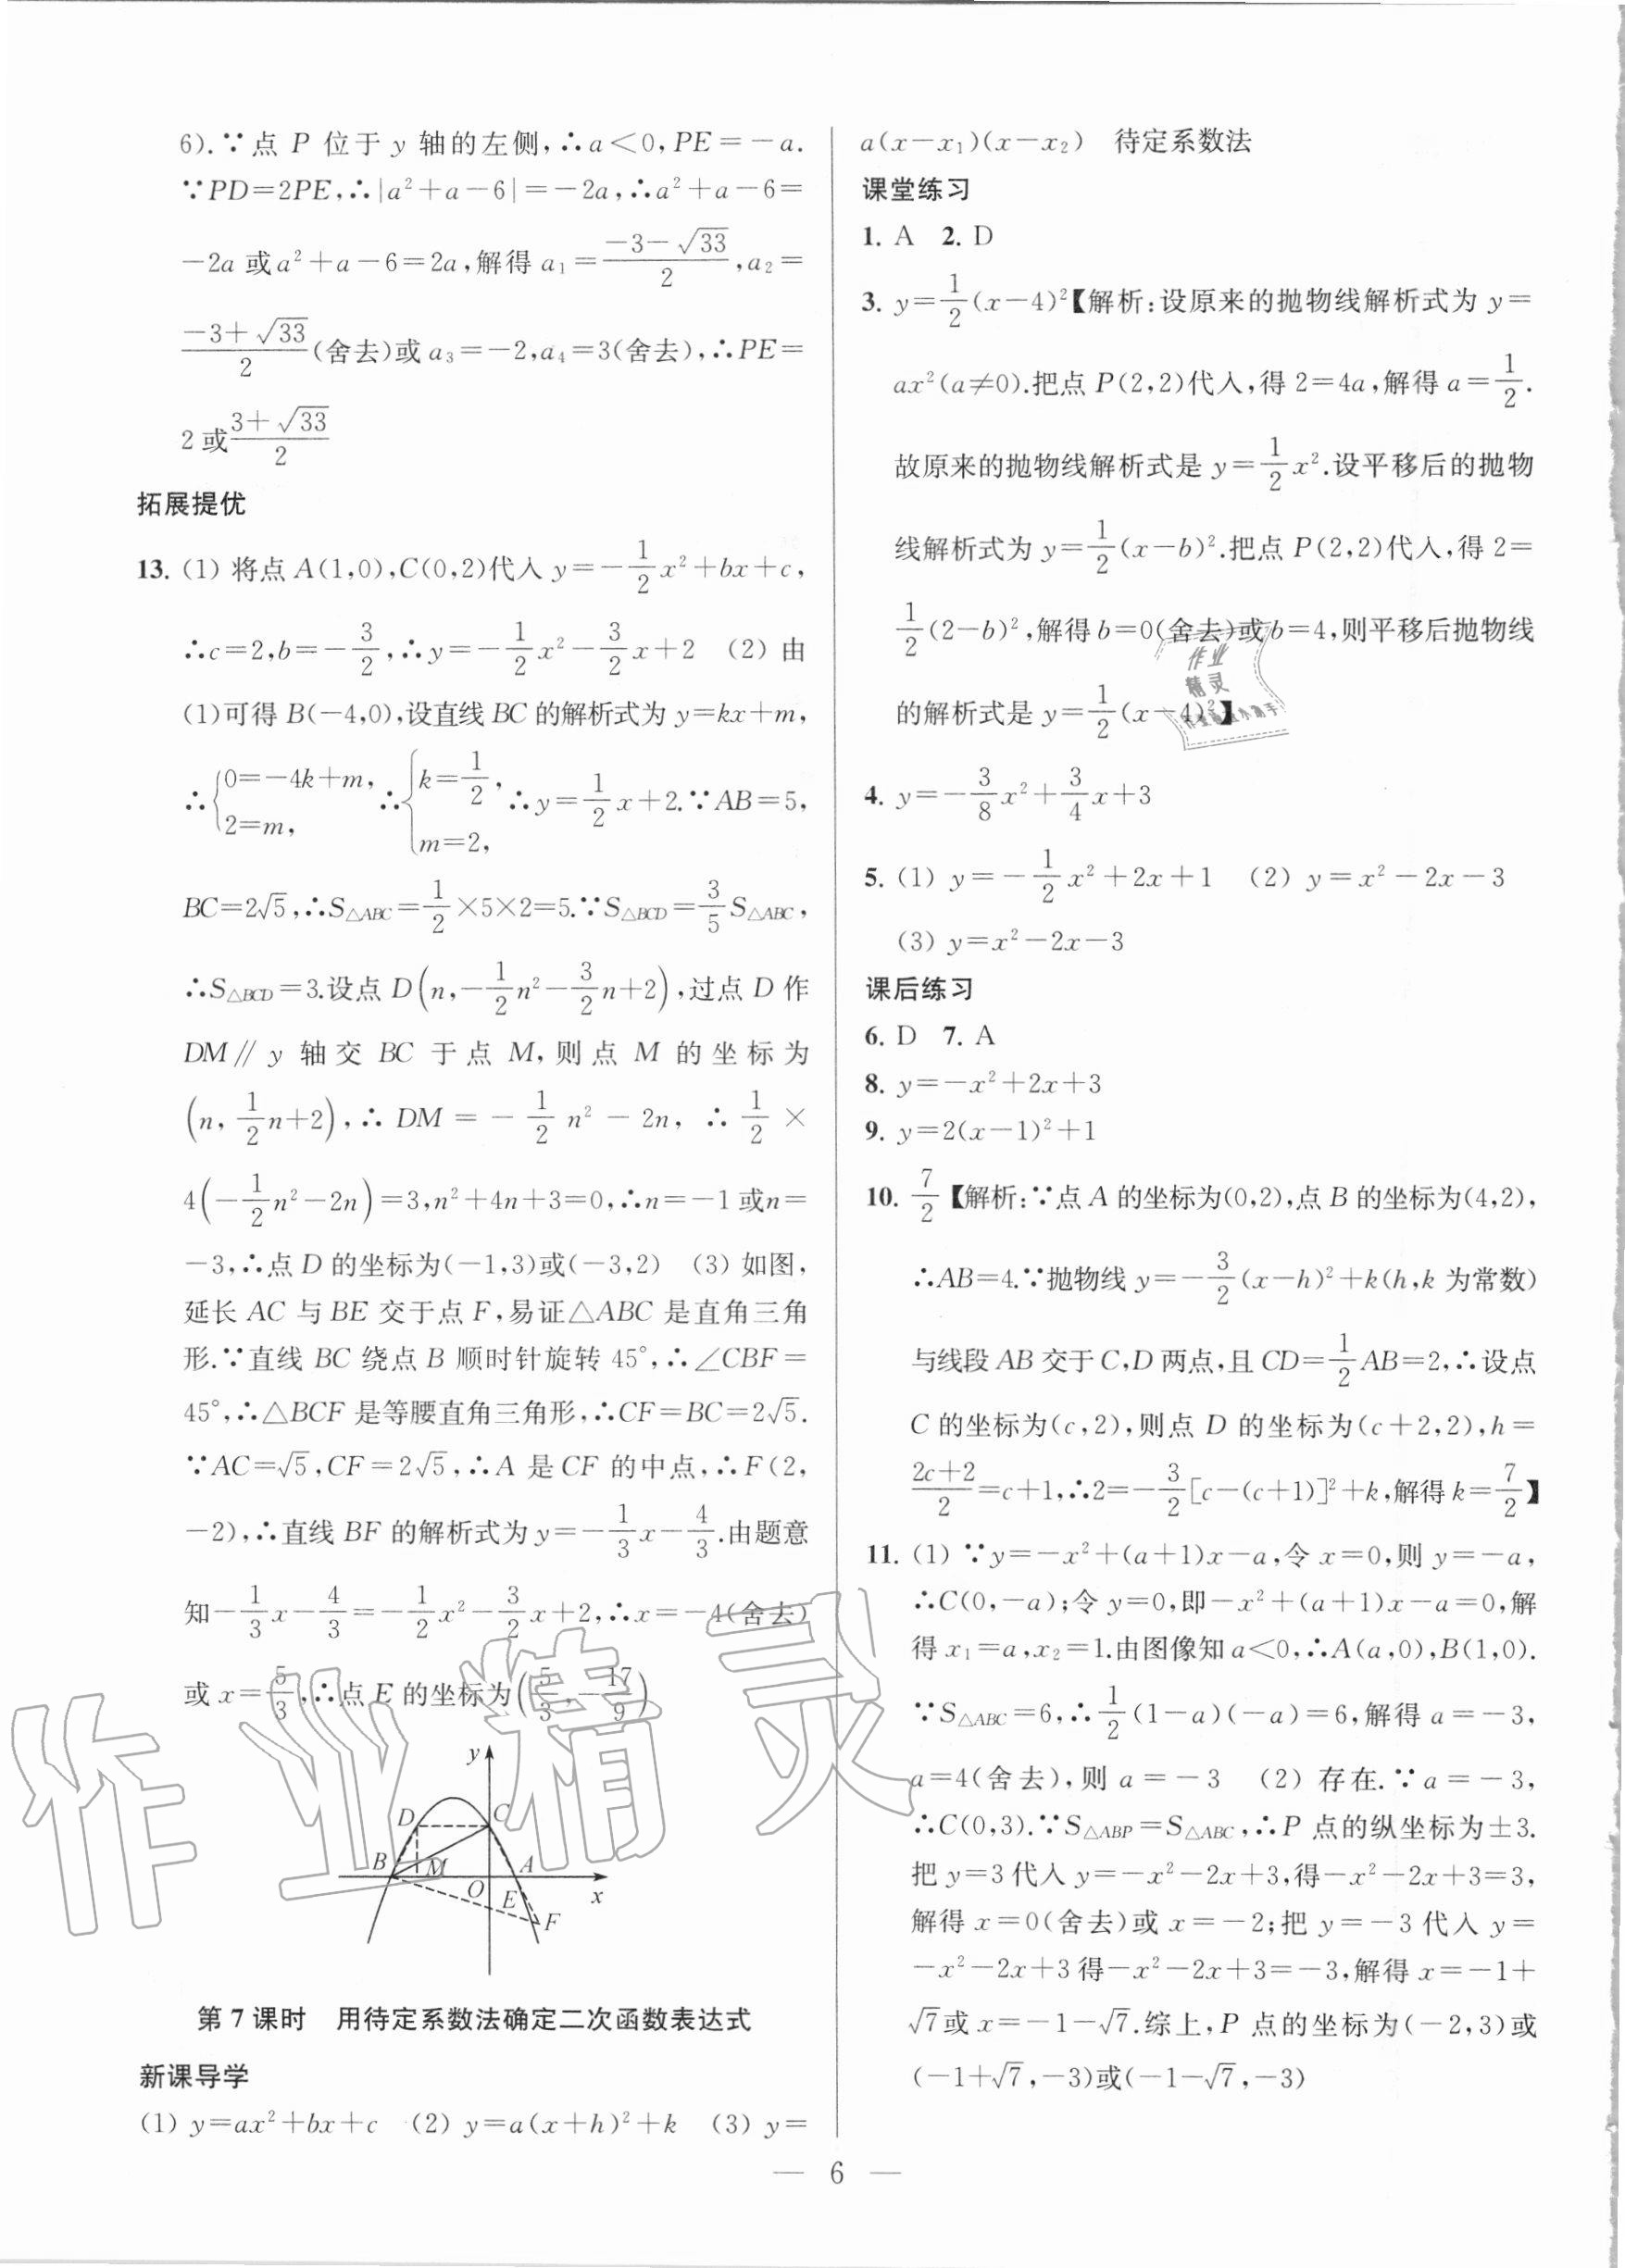 6).∵点 P 位于 y 轴的左侧,∴a<0,PE=-a.
∵PD=2PE,∴|a²+a-6|=-2a,∴a²+a-6=
-2a 或 a²+a-6=2a,解得 a₁=(-3-√33)/2,a₂=
(-3+√33)/2(舍去)或 a₃=-2,a₄=3(舍去),∴PE=
2 或(3+√33)/2
拓展提优
13. (1) 将点 A(1,0),C(0,2)代入 y=-1/2x²+bx+c,
∴c=2,b=-3/2,∴y=-1/2x²-3/2x+2 (2) 由
(1)可得 B(-4,0),设直线 BC 的解析式为 y=kx+m,
∴{0=-4k+m, 2=m, ∴{k=1/2, m=2, ∴y=1/2x+2.∵AB=5,
BC=2√5,∴S△ABC=1/2×5×2=5.∵S△BCD=3/5S△ABC,
∴S△BCD=3.设点 D(n,-1/2n²-3/2n+2),过点 D 作
DM∥y 轴交 BC 于点 M,则点 M 的坐标为
(n,1/2n+2),∴DM=-1/2n²-2n,∴1/2×
4(-1/2n²-2n)=3,n²+4n+3=0,∴n=-1 或 n=
-3,∴点 D 的坐标为(-1,3)或(-3,2) (3) 如图,
延长 AC 与 BE 交于点 F,易证△ABC 是直角三角
形.∵直线 BC 绕点 B 顺时针旋转 45°,∴∠CBF=
45°,∴△BCF 是等腰直角三角形,∴CF=BC=2√5.
∵AC=√5,CF=2√5,∴A 是 CF 的中点,∴F(2,
-2),∴直线 BF 的解析式为 y=-1/3x-4/3.由题意
知-1/3x-4/3=-1/2x²-3/2x+2,∴x=-4(舍去)
或 x=5/3,∴点 E 的坐标为(5/3,-17/9)
y
D C
B M A
O E x
F
第 7 课时 用待定系数法确定二次函数表达式
新课导学
(1) y=ax²+bx+c (2) y=a(x+h)²+k (3) y=
a(x-x₁)(x-x₂) 待定系数法
课堂练习
1. A 2. D
3. y=1/2(x-4)²【解析:设原来的抛物线解析式为 y=
ax²(a≠0).把点 P(2,2)代入,得 2=4a,解得 a=1/2.
故原来的抛物线解析式是 y=1/2x².设平移后的抛物
线解析式为 y=1/2(x-b)².把点 P(2,2)代入,得 2=
1/2(2-b)²,解得 b=0(舍去)或 b=4,则平移后抛物线
的解析式是 y=1/2(x-4)²】
4. y=-3/8x²+3/4x+3
5. (1) y=-1/2x²+2x+1 (2) y=x²-2x-3
(3) y=x²-2x-3
课后练习
6. D 7. A
8. y=-x²+2x+3
9. y=2(x-1)²+1
10. 7/2【解析:∵点 A 的坐标为(0,2),点 B 的坐标为(4,2),
∴AB=4.∵抛物线 y=-3/2(x-h)²+k(h,k 为常数)
与线段 AB 交于 C,D 两点,且 CD=1/2AB=2,∴设点
C 的坐标为(c,2),则点 D 的坐标为(c+2,2),h=
(2c+2)/2=c+1,∴2=-3/2[c-(c+1)]²+k,解得 k=7/2】
11. (1) ∵y=-x²+(a+1)x-a,令 x=0,则 y=-a,
∴C(0,-a);令 y=0,即-x²+(a+1)x-a=0,解
得 x₁=a,x₂=1.由图像知 a<0,∴A(a,0),B(1,0).
∵S△ABC=6,∴1/2(1-a)(-a)=6,解得 a=-3,
a=4(舍去),则 a=-3 (2) 存在.∵a=-3,
∴C(0,3).∵S△ABP=S△ABC,∴P 点的纵坐标为±3.
把 y=3 代入 y=-x²-2x+3,得-x²-2x+3=3,
解得 x=0(舍去)或 x=-2;把 y=-3 代入 y=
-x²-2x+3 得-x²-2x+3=-3,解得 x=-1+
√7或 x=-1-√7.综上,P 点的坐标为(-2,3)或
(-1+√7,-3)或(-1-√7,-3)
— 6 —
作业精灵
作业
精灵